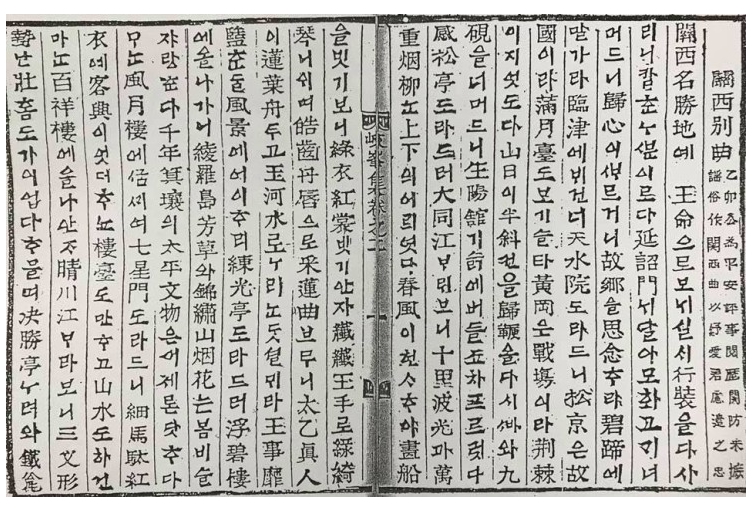 關西別曲 乙卯公為平安評事閱歷關防未攄
謠俗作關西曲以紓愛君慮邊之忠
關西名勝地예 王命으로보ᄂᆡ실ᄉᆡ行裝을다사
리니칼ᄒᆞᆫᄂᆞᄲᅮᆫ이로다延詔門ᄂᆡ달아모화고ᄀᆡ너
머드니歸心이ᄲᆞ르거니故鄕을思念ᄒᆞ랴碧蹄에
말가라臨津에ᄇᆡ건너天水院도라드니松京은故
國이라滿月臺도보기슬타黃岡은戰塲이라荊棘
이지엇도다山日이半斜컨을歸鞭을다시ᄲᅢ와九
硯을너머드니生陽館기슭에버들죠차프르럿다
感松亭도라드러大同江ᄇᆞ라보니十里波光과萬
重烟柳ᄂᆞᆫ上下의어릐엿다春風이헌ᄉᆞᄒᆞ야畵船
岐峯集卷之二 一
을빗기보니綠衣紅裳빗기안자纖纖玉手로綠綺
琴니ᄋᆡ며皓齒丹唇으로采蓮曲브ᄅᆞ니太乙眞人
이蓮葉舟ᄐᆞ고玉河水로ᄂᆞ리ᄂᆞᆫ듯셜ᄆᆡ라王事靡
盬ᄒᆞᆫᄃᆞᆯ風景에어이ᄒᆞ리練光亭도라드러浮碧樓
에올나가니綾羅島芳草와錦繡山烟花는봄비슬
쟈랑ᄒᆞᆫ다千年箕壤의太平文物은어제론닷ᄒᆞ다
마ᄂᆞᆫ風月樓에ᄭᅮᆷᄭᆡ여七星門도라드니細馬駄紅
衣예客興이엇더ᄒᆞ뇨樓臺도만ᄒᆞ고山水도하건
마ᄂᆞᆫ百祥樓에올나안ᄌᆞ晴川江ᄇᆞ라보니三叉形
勢ᄂᆞᆫ壯홈도가이업다ᄒᆞ믈며决勝亭ᄂᆞ려와鐵瓮